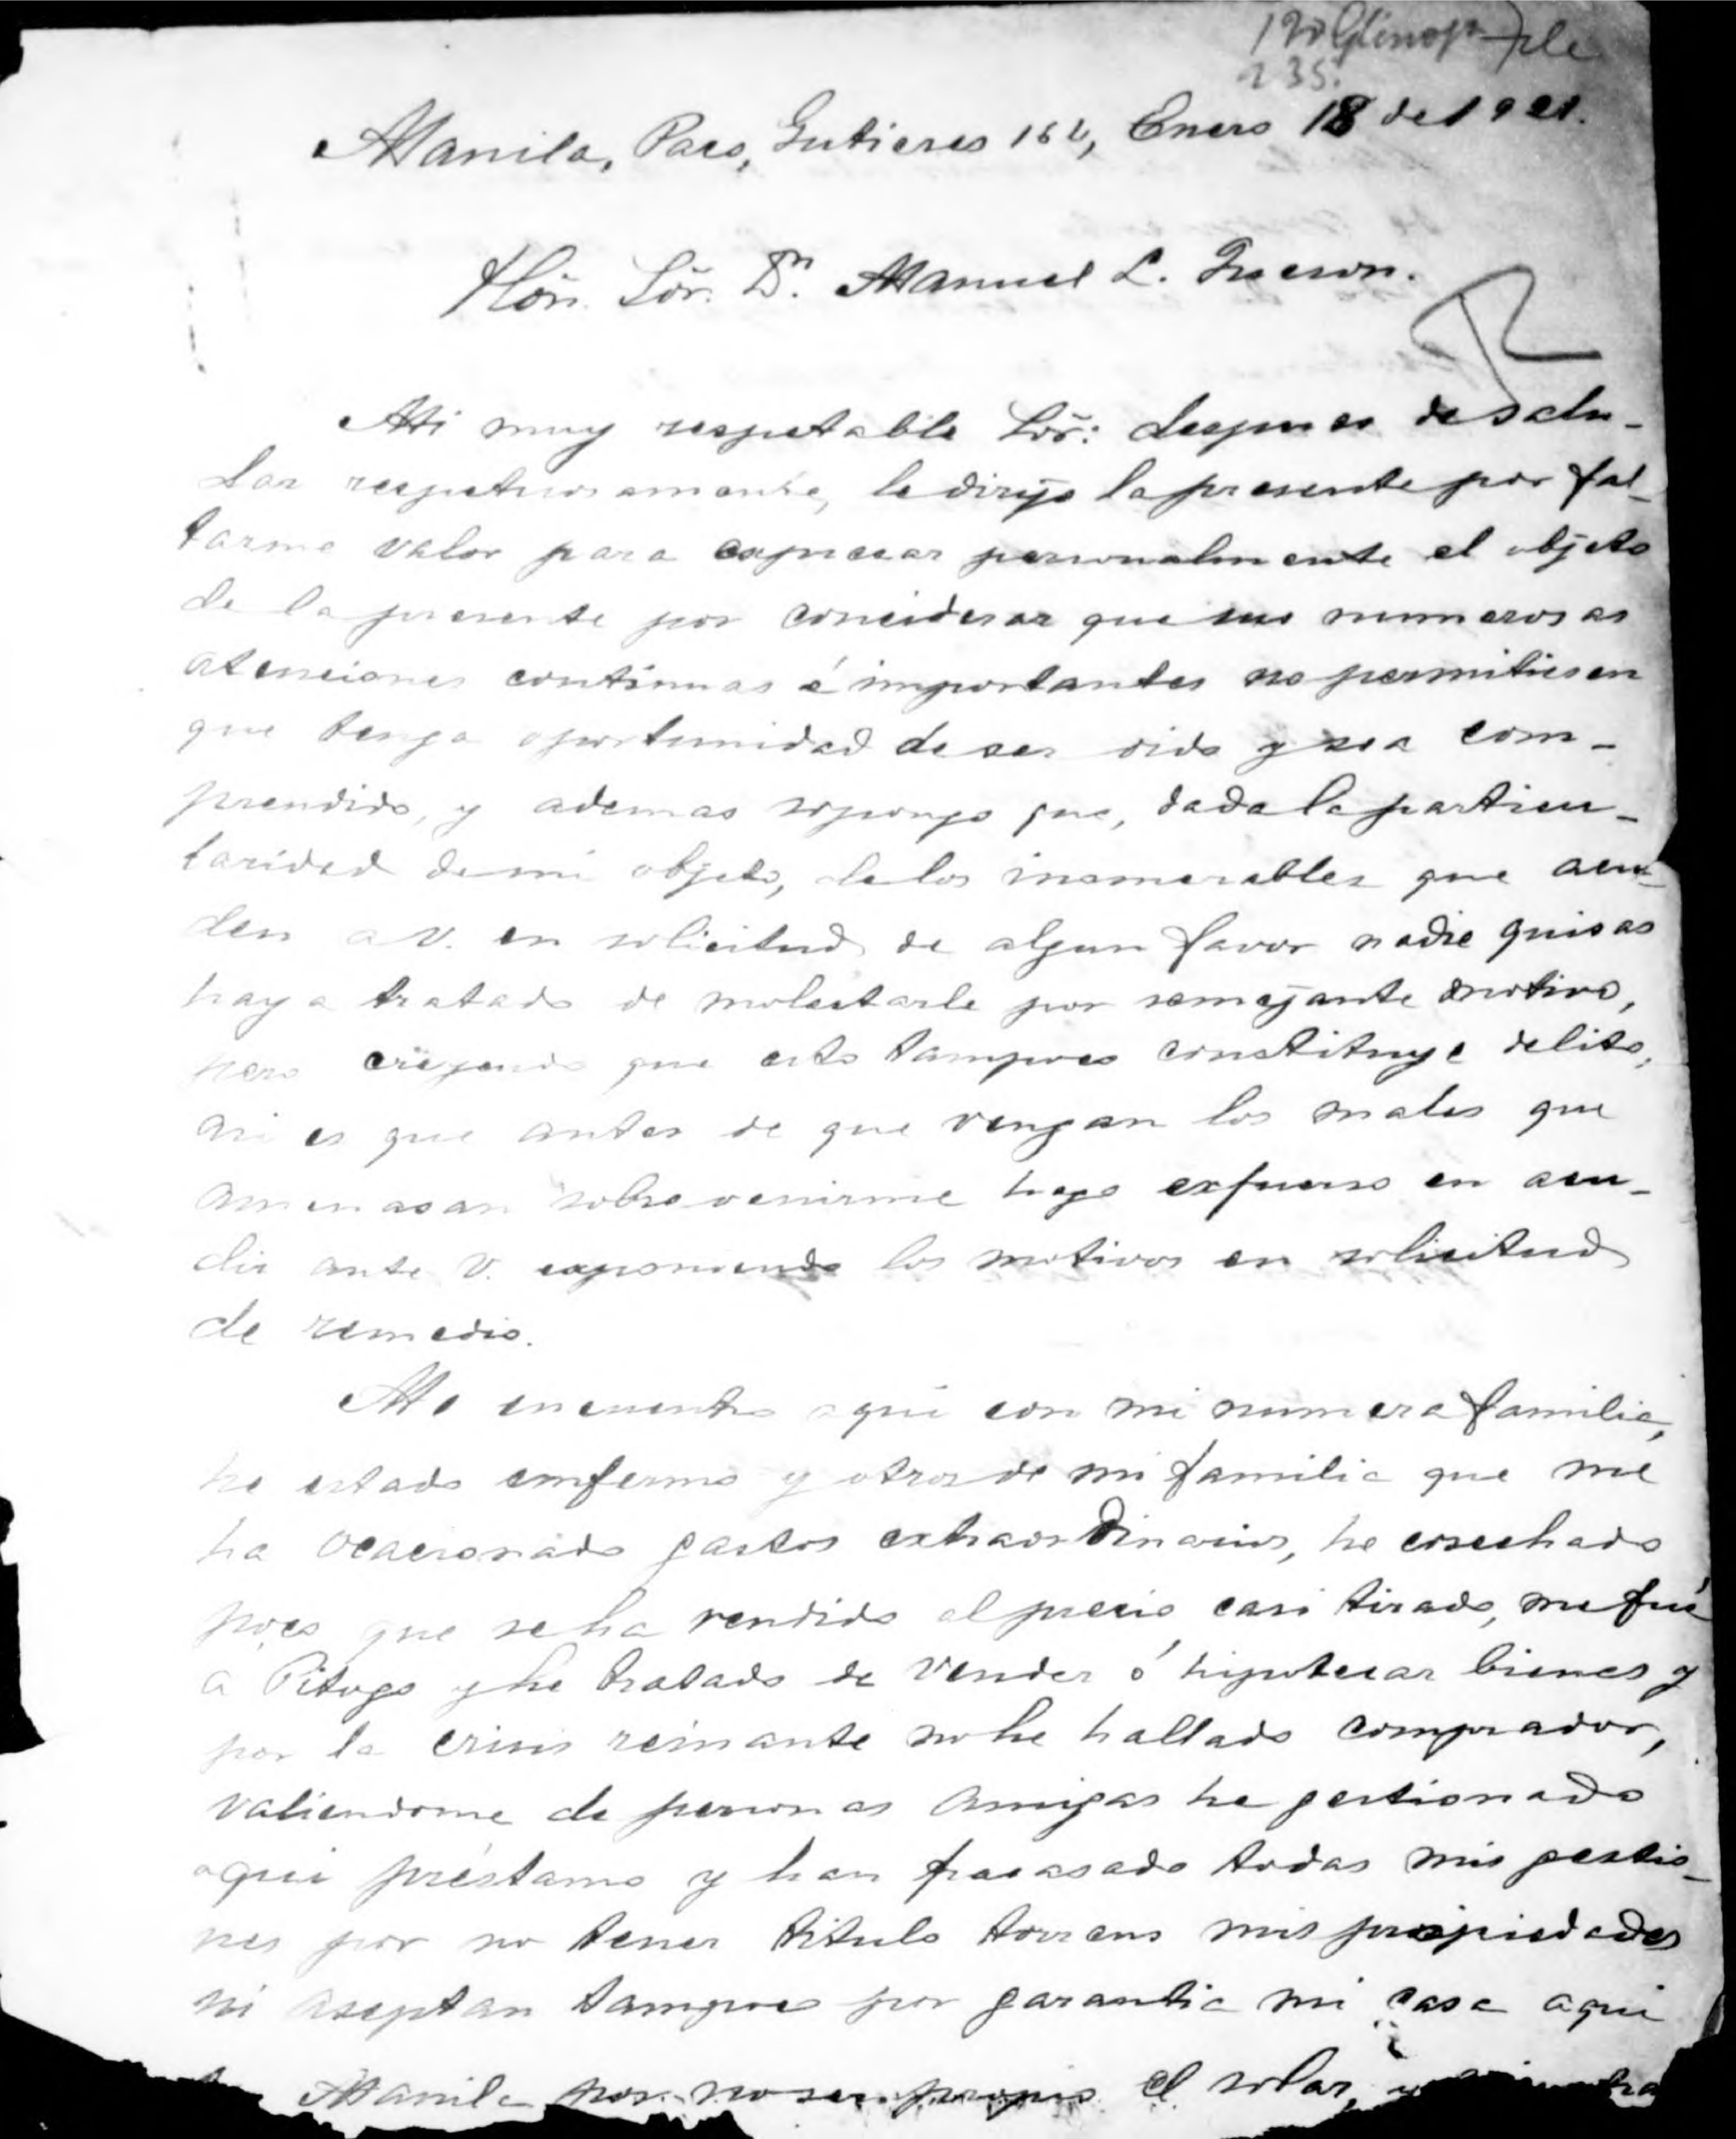 file
235.
Manila, Paco, Gutieres 162, Enero 18 de 1921.
Hon. Sõr. Dn. Manuel L. Quezon.
Mi muy respetable Sõr: despues de salu-
dar respetuosamente, le dirijo la presente por fal-
tarme valor para expresar personalmente el objeto
de la presente por conciderar que sus numerosas
atenciones continuas é importantes no permitiesen
que tenga oportunidad de ser oido y sea com-
prendido, y ademas supongo que, dada la particu-
laridad de mi objeto, de los inumerables que acu-
den a V. en solicitud de algun favor nadie quisas
haya tratado de molestarle por semejante motivo,
pero creyendo que esto tampoco constituye delito,
asi es que antes de que vengan los males que
amenasan sobrevenirme hago exfuerso en acu-
dir ante V. exponiendo los motivos en solicitud
de remedio.
Me encuentro aqui con mi numera familia,
he estado emfermo y otros de mi familia que me
ha ocacionado gastos extraordinarios, he cosechado
poco que se ha vendido al precio casi tirado, me fué
a Pitogo y he tratado de vender ó hipotecar bienes y
por la crisis reinante no he hallado comprador,
valiendome de personas amigas he gestionado
aqui préstamo y han fracasado todas mis gestio-
nes por no tener titulo torrens mis propiedades
ni aseptan tampoco por garantia mi casa aqui
Manila por no ser propio el solar, y